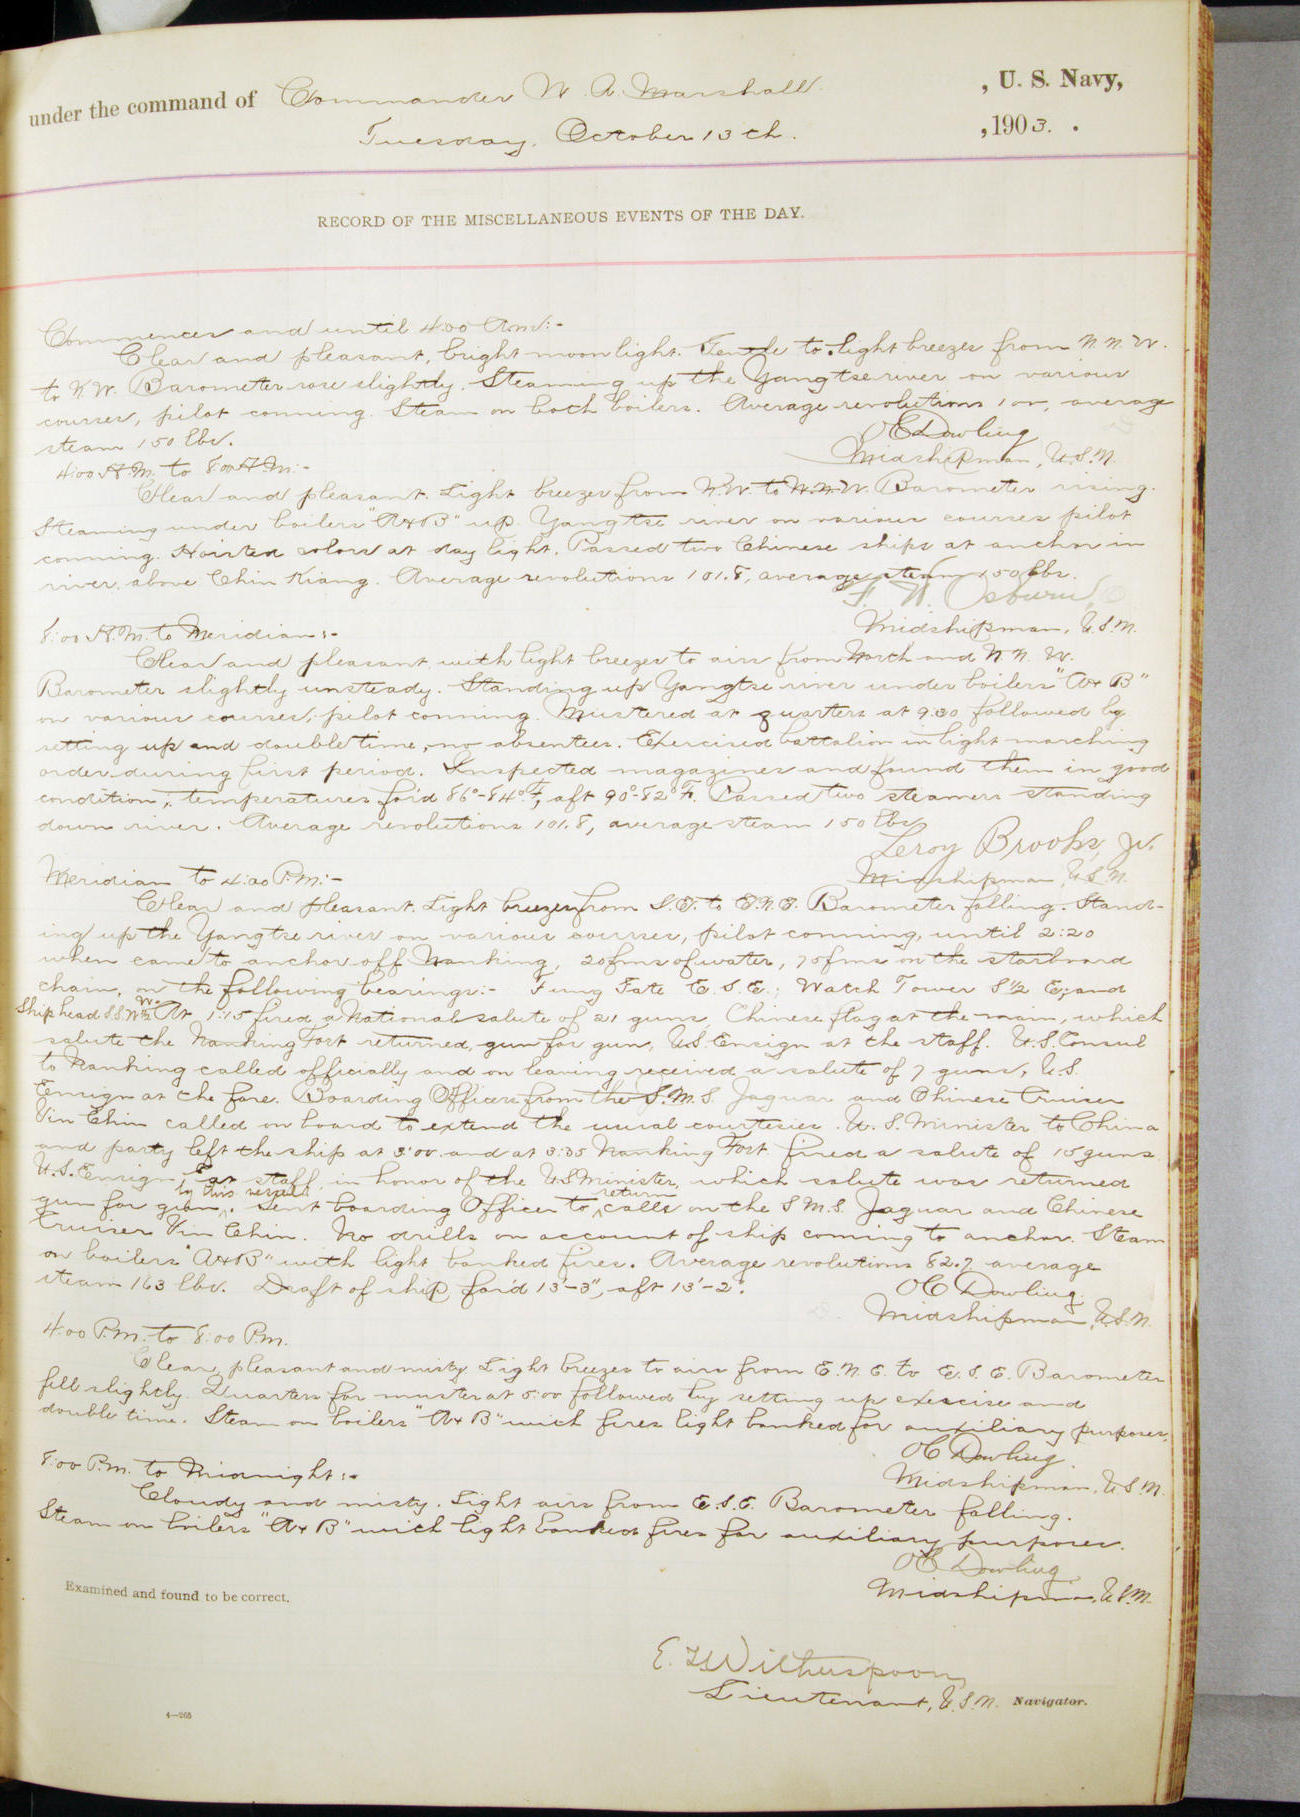 under the command of Commander W. A. Marshall , U. S. Navy,
Tuesday, October 13th. , 1903. .
RECORD OF THE MISCELLANEOUS EVENTS OF THE DAY.
Commences and until 4:00 A.m.:-
Clear and pleasant, bright moonlight. Gentle to light breezes from N.N.W.
to N.W. Barometer rose slightly. Steaming up the Yangtse river on various
courses, pilot conning. Steam on both boilers. Average revolutions 100, average
steam 150 lbs.
O C Dowling
Midshipman, U.S.N.
4:00 A.M. to 8:00 A.M.:-
Clear and pleasant. Light breezes from N.W. to N.N.W. Barometer rising.
Steaming under boilers "A & B" up Yangtse river on various courses pilot
conning. Hoisted colors at daylight. Passed two Chinese ships at anchor in
river above Chin Kiang. Average revolutions 101.8, average steam 150 lbs.
F. W. Osburn
Midshipman, U.S.N.
8:00 A.M. to Meridian:-
Clear and pleasant, with light breezes to airs from North and N.N.W.
Barometer slightly unsteady. Standing up Yangtse river under boilers "A & B"
on various courses, pilot conning. Mustered at quarters at 9:30 followed by
setting up and double time, no absentees. Exercised battalion in light marching
order during first period. Inspected magazines and found them in good
condition; temperatures for'd 86°-84° F, aft 90°-82° F. Passed two steamers standing
down river. Average revolutions 101.8, average steam 150 lbs
Leroy Brooks, Jr.
Midshipman, U.S.N.
Meridian to 4:00 P.M.:-
Clear and pleasant. Light breezes from S.E. to E.N.E. Barometer falling. Stand-
ing up the Yangtse river on various courses, pilot conning, until 2:20
when came to anchor off Nanking, 20 fms of water, 75 fms on the starboard
chain, on the following bearings:- Fung Gate E.S.E.; Watch Tower S ½ E; and
Ship head S S W ½ W. At 1:15 fired a National salute of 21 guns Chinese flag at the main, which
salute the Nanking Fort returned, gun for gun, U.S. Ensign at the staff. U.S. Consul
to Nanking called officially and on leaving received a salute of 7 guns, U.S.
Ensign at the fore. Boarding Officers from the S.M.S. Jaguar and Chinese Cruiser
Vin Chin called on board to extend the usual courtesies. U.S. Minister to China
and party left the ship at 3:00 and at 3:35 Nanking Fort fired a salute of 15 guns
U.S. Ensign, at staff, in honor of the U S Minister, which salute was returned
gun for gun by this vessel. Sent boarding Officer to return calls on the S M.S. Jaguar and Chinese
Cruiser Vin Chin. No drills on account of ship coming to anchor. Steam
on boilers "A & B" with light banked fires. Average revolutions 82.7 average
steam 163 lbs. Draft of ship, for'd 13'-3", aft 13'-2".
O C Dowling
Midshipman, U.S.N.
4:00 P.m. to 8:00 P.m.
Clear, pleasant and misty. Light breezes to airs from E.N.E. to E.S.E. Barometer
fell slightly. Quarters for muster at 5:00 followed by setting up exercise and
double time. Steam on boilers "A & B" with fires light banked for auxiliary purposes.
O C Dowling.
Midshipman, U.S.N.
8:00 P.m. to Midnight:-
Cloudy and misty. Light airs from E.S.E. Barometer falling.
Steam on boilers "A & B" with light banked fires for auxiliary purposes.
O C Dowling
Midshipman, U.S.N.
Examined and found to be correct.
E. Witherspoon,
Lieutenant, U.S.N. Navigator.
4—265